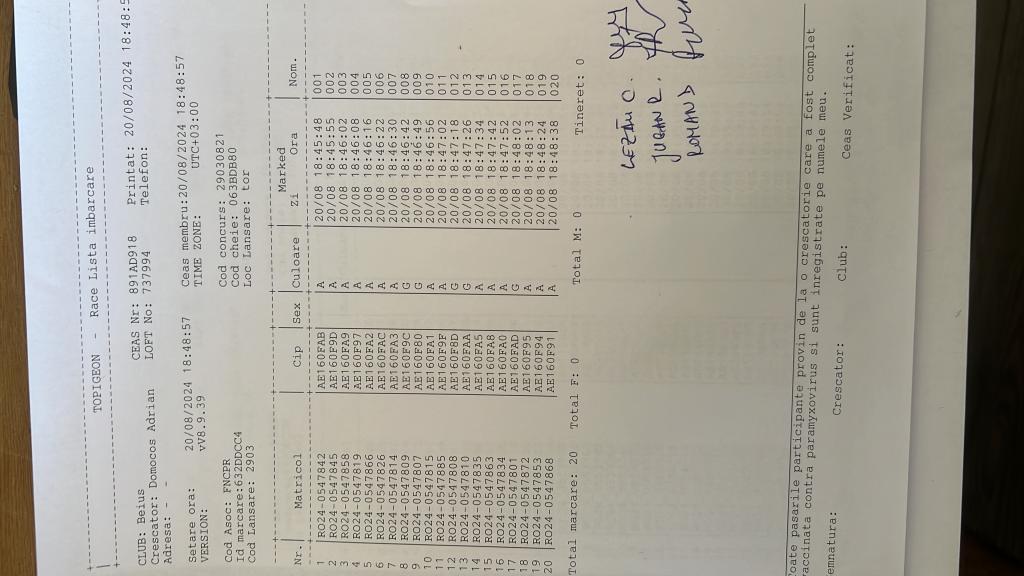 TOPIGEON - Race Lista imbarcare
CLUB: Beius CEAS Nr: 891AD918 Printat: 20/08/2024 18:48:5
Crescator: Domocos Adrian LOFT No: 737994 Telefon:
Adresa: -
Setare ora: 20/08/2024 18:48:57 Ceas membru:20/08/2024 18:48:57
VERSION: vV8.9.39 TIME ZONE: UTC+03:00
Cod Asoc: FNCPR Cod concurs: 29030821
Id marcare:632DDCC4 Cod cheie: 063BDB80
Cod Lansare: 2903 Loc Lansare: tor
Marked
Nr. Matricol Cip Sex Culoare Zi Ora Nom.
1 RO24-0547842 AE160FAB A 20/08 18:45:48 001
2 RO24-0547845 AE160F9D A 20/08 18:45:55 002
3 RO24-0547858 AE160FA9 A 20/08 18:46:02 003
4 RO24-0547819 AE160F97 A 20/08 18:46:08 004
5 RO24-0547866 AE160FA2 A 20/08 18:46:16 005
6 RO24-0547826 AE160FAC A 20/08 18:46:22 006
7 RO24-0547814 AE160FA3 A 20/08 18:46:30 007
8 RO24-0547809 AE160F9C G 20/08 18:46:42 008
9 RO24-0547807 AE160FB0 G 20/08 18:46:49 009
10 RO24-0547815 AE160FA1 A 20/08 18:46:56 010
11 RO24-0547885 AE160F9F A 20/08 18:47:02 011
12 RO24-0547808 AE160F8D G 20/08 18:47:18 012
13 RO24-0547810 AE160FAA G 20/08 18:47:26 013
14 RO24-0547835 AE160FA5 A 20/08 18:47:34 014
15 RO24-0547863 AE160FA8 A 20/08 18:47:42 015
16 RO24-0547834 AE160FA0 A 20/08 18:47:52 016
17 RO24-0547801 AE160FAD G 20/08 18:48:02 017
18 RO24-0547872 AE160F95 A 20/08 18:48:13 018
19 RO24-0547853 AE160F94 A 20/08 18:48:24 019
20 RO24-0547868 AE160F91 A 20/08 18:48:38 020
Total marcare: 20 Total F: 0 Total M: 0 Tineret: 0
C.
JUGAN R.
ROMAND
Toate pasarile participante provin de la o crescatorie care a fost complet
vaccinata contra paramyxovirus si sunt inregistrate pe numele meu.
emnatura: Crescator: Club: Ceas Verificat: